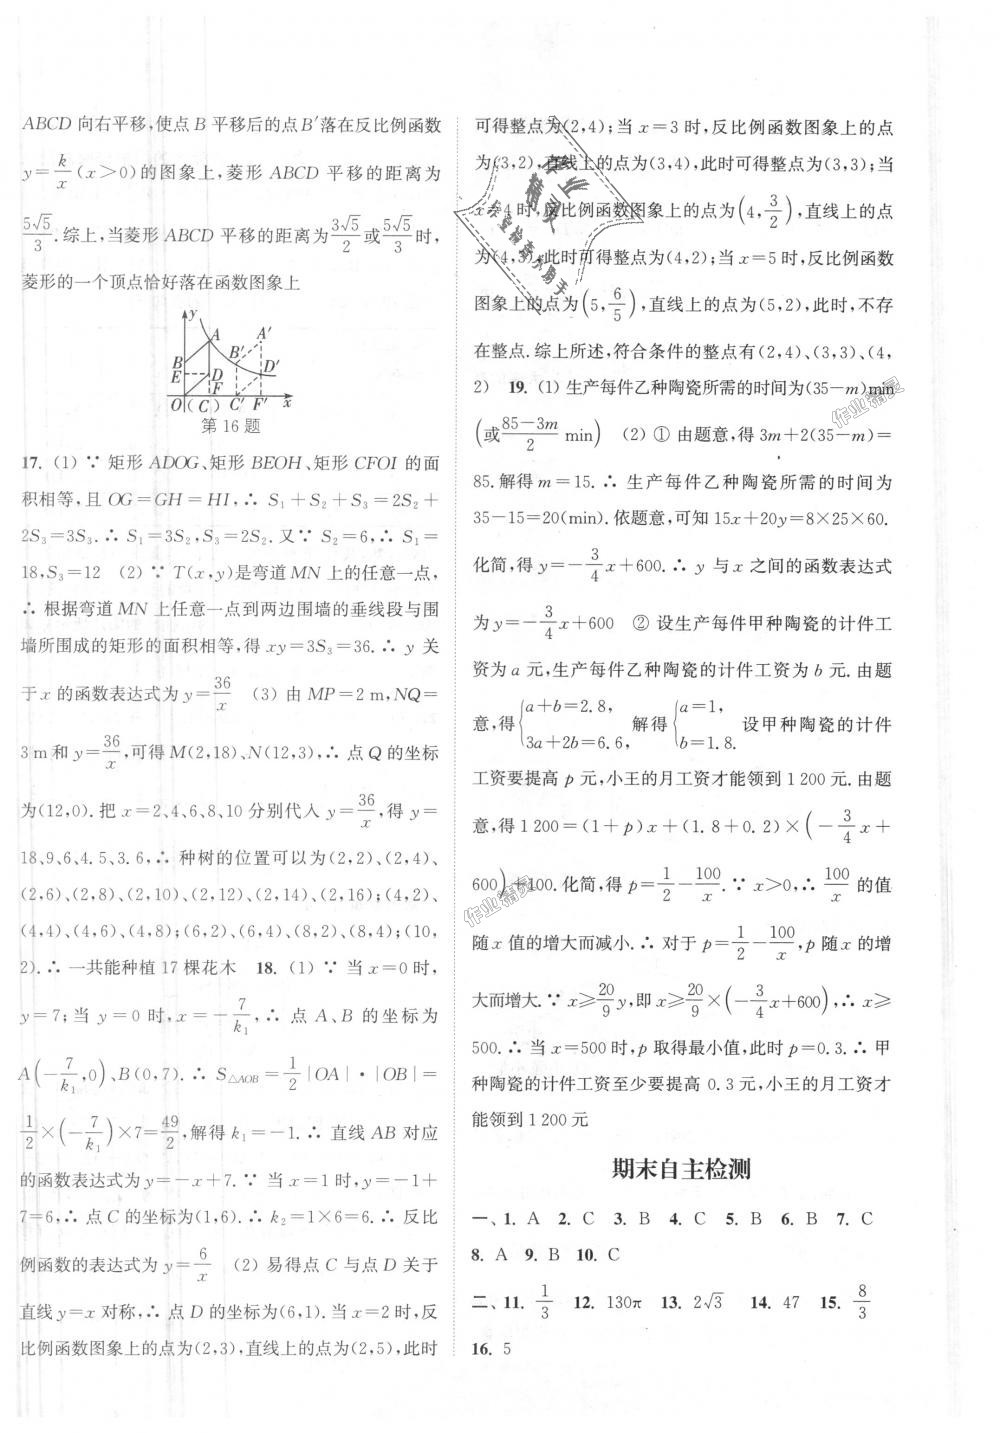 ABCD 向右平移,使点 B 平移后的点B′落在反比例函数
y=k/x(x>0)的图象上,菱形 ABCD 平移的距离为
5√5/3.综上,当菱形 ABCD 平移的距离为3√5/2或5√5/3时,
菱形的一个顶点恰好落在函数图象上
y A A′ B B′ E D D′ F O (C) C′ F′ x
第 16 题
17. (1) ∵ 矩形 ADOG、矩形 BEOH、矩形 CFOI 的面
积相等,且 OG=GH=HI,∴ S₁+S₂+S₃=2S₂+
2S₃=3S₃.∴ S₁=3S₂,S₃=2S₂.又∵ S₂=6,∴ S₁=
18,S₃=12 (2) ∵ T(x,y)是弯道 MN 上的任意一点,
∴ 根据弯道 MN 上任意一点到两边围墙的垂线段与围
墙所围成的矩形的面积相等,得 xy=3S₃=36.∴ y 关
于 x 的函数表达式为 y=36/x (3) 由 MP=2 m,NQ=
3 m和 y=36/x,可得 M(2,18)、N(12,3),∴ 点 Q 的坐标
为(12,0).把 x=2,4,6,8,10 分别代入 y=36/x,得 y=
18,9,6,4.5,3.6,∴ 种树的位置可以为(2,2)、(2,4)、
(2,6)、(2,8)、(2,10)、(2,12)、(2,14)、(2,16);(4,2)、
(4,4)、(4,6)、(4,8);(6,2)、(6,4);(8,2)、(8,4);(10,
2).∴ 一共能种植 17 棵花木 18. (1) ∵ 当 x=0 时,
y=7;当 y=0 时,x=-7/k₁,∴ 点 A、B 的坐标为
A(-7/k₁,0)、B(0,7).∴ S△AOB=1/2|OA|·|OB|=
1/2×(-7/k₁)×7=49/2,解得 k₁=-1.∴ 直线 AB 对应
的函数表达式为 y=-x+7.∵ 当 x=1 时,y=-1+
7=6,∴ 点 C 的坐标为(1,6).∴ k₂=1×6=6.∴ 反比
例函数的表达式为 y=6/x (2) 易得点 C 与点 D 关于
直线 y=x 对称,∴ 点 D 的坐标为(6,1).当 x=2 时,反
比例函数图象上的点为(2,3),直线上的点为(2,5),此时
可得整点为(2,4);当 x=3 时,反比例函数图象上的点
为(3,2),直线上的点为(3,4),此时可得整点为(3,3);当
x=4 时,反比例函数图象上的点为(4,3/2),直线上的点
为(4,3),此时可得整点为(4,2);当 x=5 时,反比例函数
图象上的点为(5,6/5),直线上的点为(5,2),此时,不存
在整点.综上所述,符合条件的整点有(2,4)、(3,3)、(4,
2) 19. (1) 生产每件乙种陶瓷所需的时间为(35-m)min
(或85-3m/2 min) (2) ① 由题意,得 3m+2(35-m)=
85.解得 m=15.∴ 生产每件乙种陶瓷所需的时间为
35-15=20(min).依题意,可知 15x+20y=8×25×60.
化简,得 y=-3/4x+600.∴ y 与 x 之间的函数表达式
为 y=-3/4x+600 ② 设生产每件甲种陶瓷的计件工
资为 a 元,生产每件乙种陶瓷的计件工资为 b 元.由题
意,得{a+b=2.8, 3a+2b=6.6, 解得{a=1, b=1.8. 设甲种陶瓷的计件
工资要提高 p 元,小王的月工资才能领到 1 200 元.由题
意,得 1 200=(1+p)x+(1.8+0.2)×(-3/4x+
600)+100.化简,得 p=1/2-100/x.∵ x>0,∴ 100/x的值
随 x 值的增大而减小.∴ 对于 p=1/2-100/x,p 随 x 的增
大而增大.∵ x≥20/9y,即 x≥20/9×(-3/4x+600),∴ x≥
500.∴ 当 x=500 时,p 取得最小值,此时 p=0.3.∴ 甲
种陶瓷的计件工资至少要提高 0.3 元,小王的月工资才
能领到 1 200 元
期末自主检测
一、1. A 2. C 3. B 4. C 5. B 6. B 7. C
8. A 9. B 10. C
二、11. 1/3 12. 130π 13. 2√3 14. 47 15. 8/3
16. 5
作业精灵
作业精灵
作业
精灵